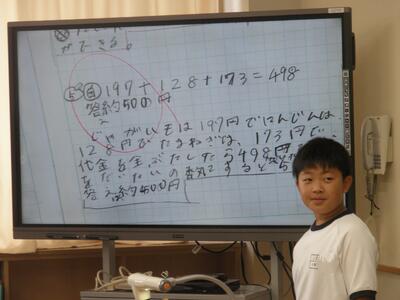 ができる。
197+128+173=498
答え約500円
じゃがいもは197円でにんじんは、
128円でたまねぎは、173円で、
代金を全ぶたしたら498円
をだいたいの数にすると5
答えは約500円